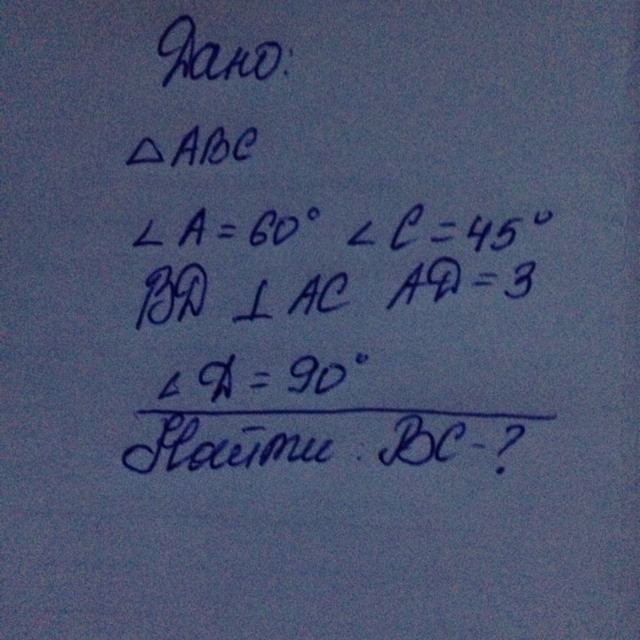 Дано:
△ABC
∠A = 60° ∠C = 45°
BD ⊥ AC AD = 3
∠D = 90°
Найти: BC - ?